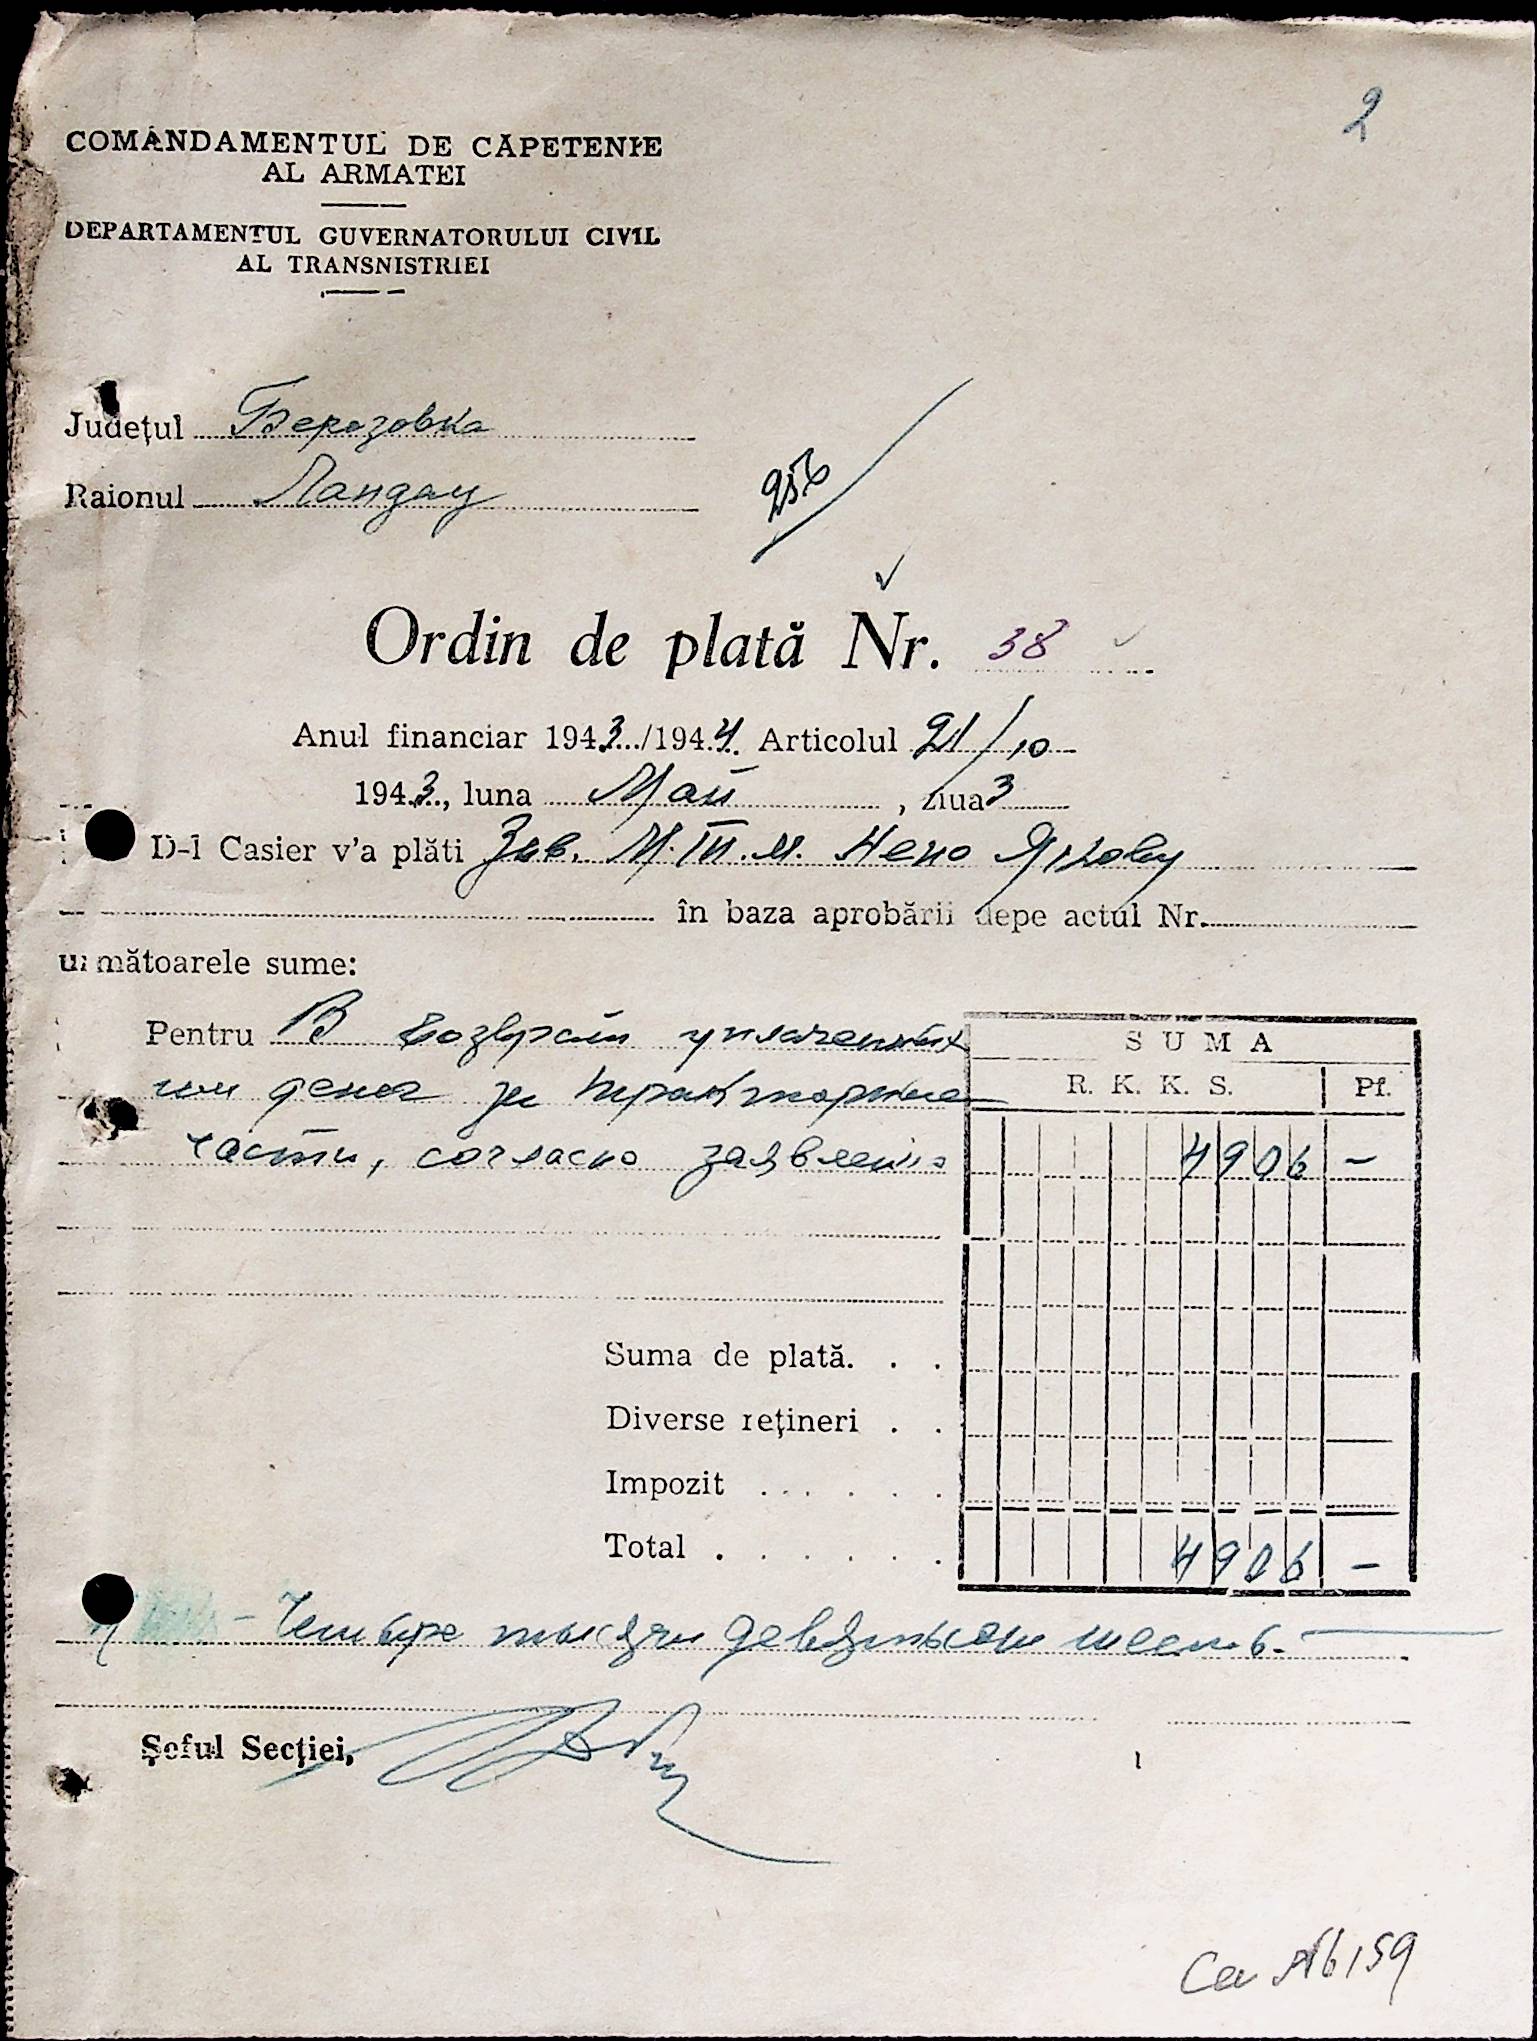 2
COMANDAMENTUL DE CĂPETENIE
AL ARMATEI
DEPARTAMENTUL GUVERNATORULUI CIVIL
AL TRANSNISTRIEI
Județul Березовка
Raionul Ландау
256
Ordin de plată Nr. 38
Anul financiar 1943/1944 Articolul 21/10
1943, luna Май, ziua 3
D-l Casier v'a plăti Зав. М.Т.М.
în baza aprobării depe actul Nr.
următoarele sume:
Pentru В возврат уплаченных
им денег за тракторные
части, согласно заявлению
SUMA
R. K. K. S. Pf.
4906 –
Suma de plată. . .
Diverse rețineri . .
Impozit . . . . . .
Total . . . . . . . 4906 –
– Четыре тысячи девятьсот шесть. –
Șeful Secției,
159